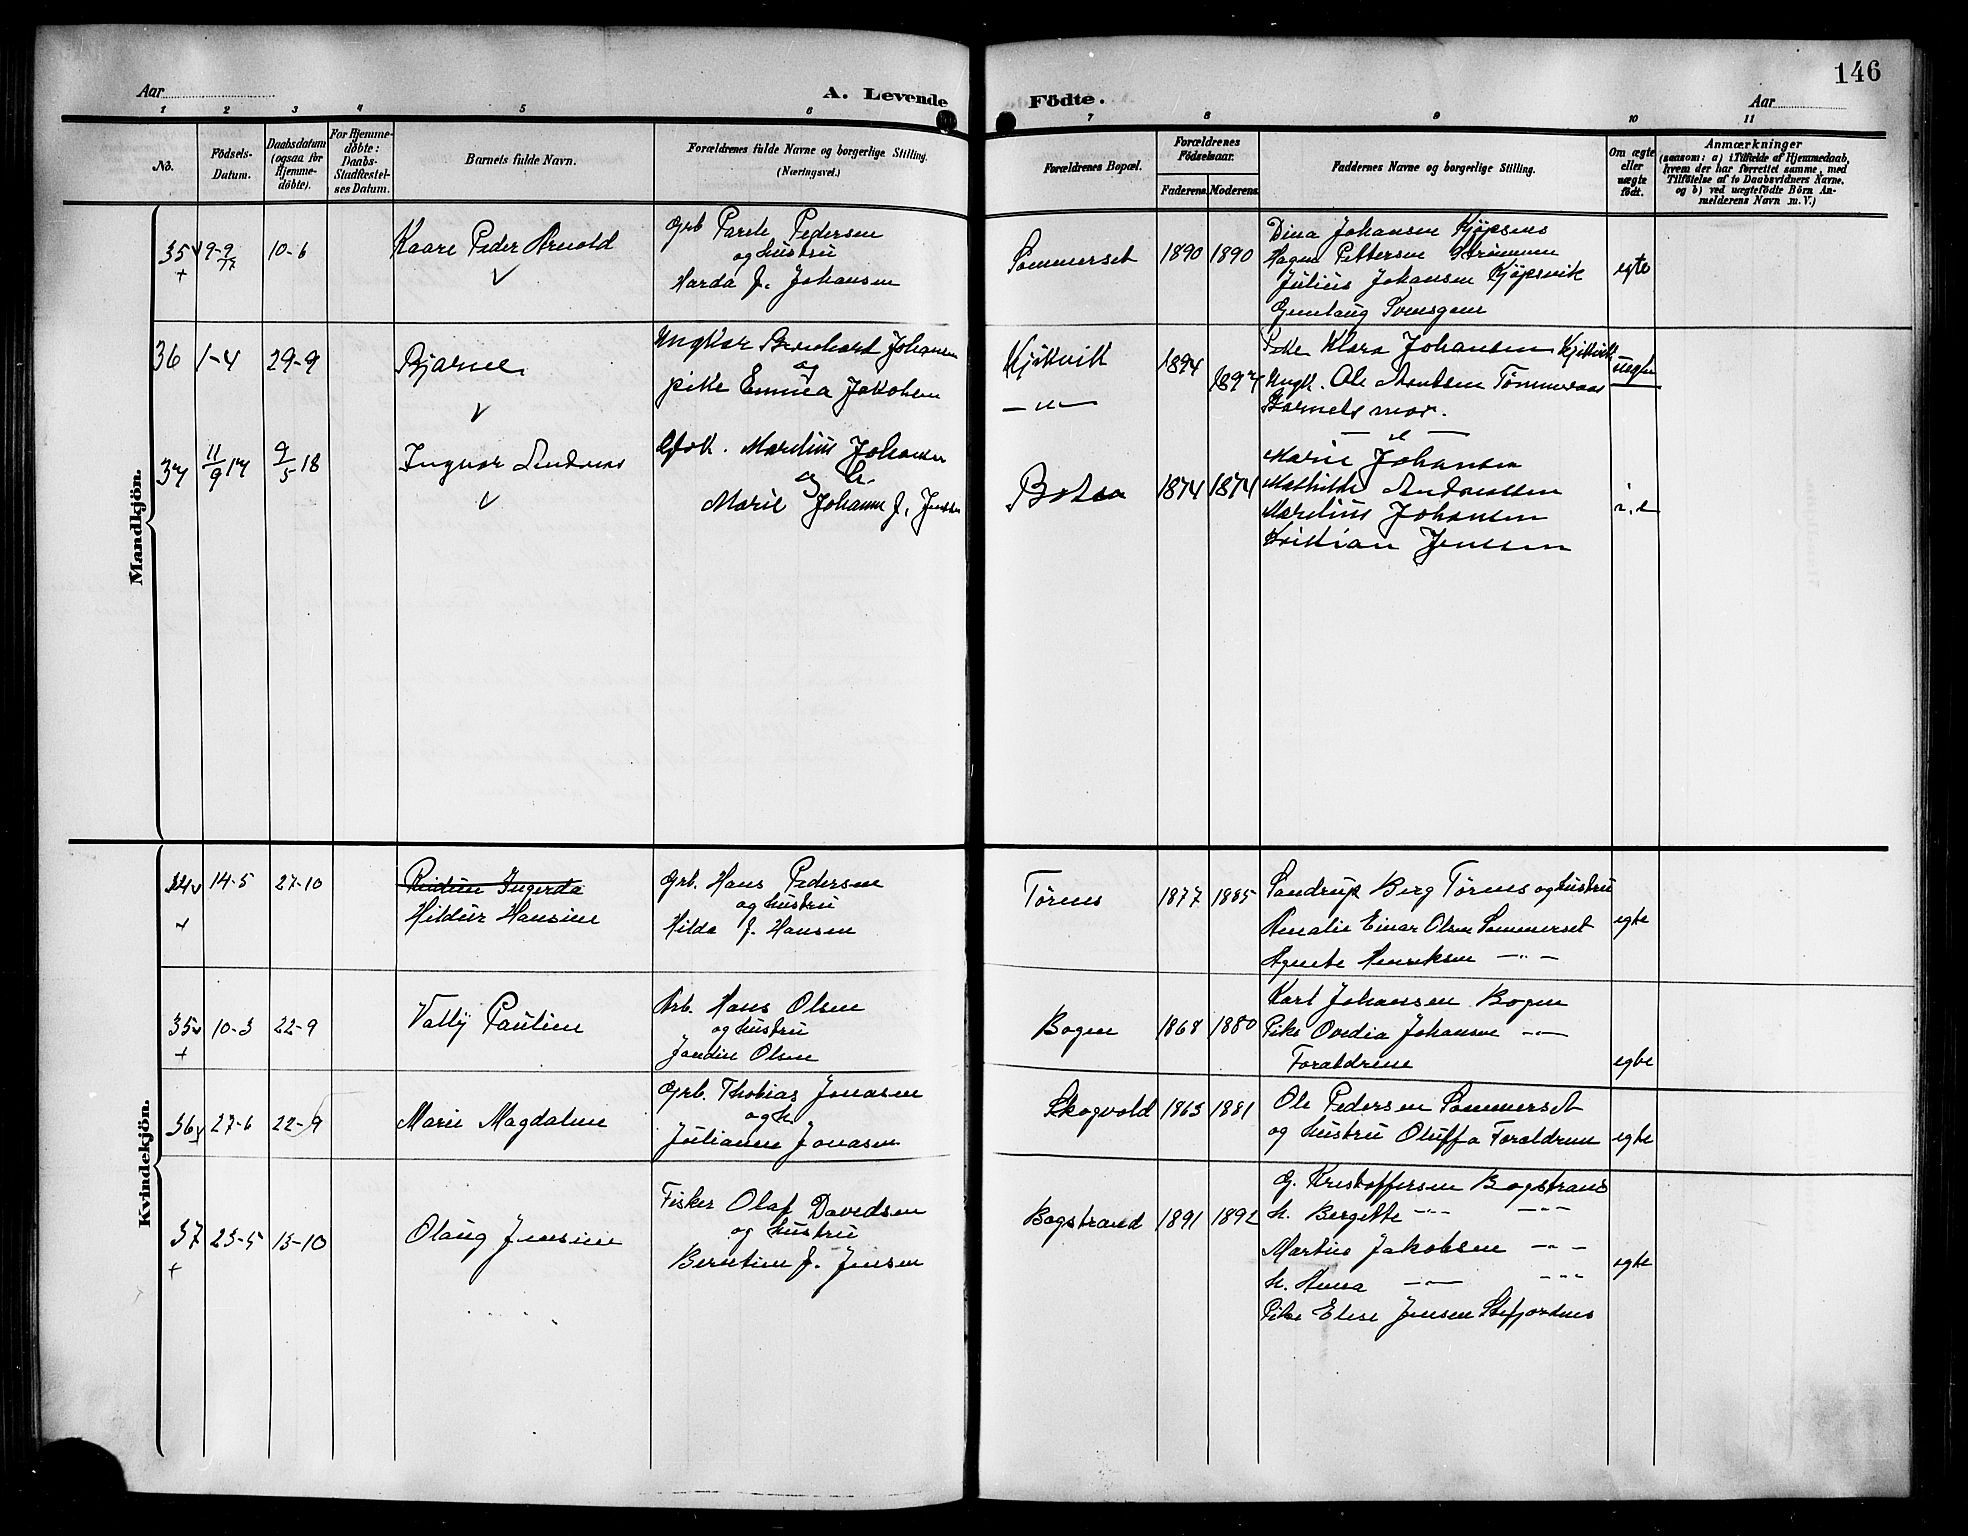 146
Aar
A. Levende
Födte.
Aar
1 2 3 4 5 6 7 8 9 10 11
No.
Födsels-
Datum.
Daabsdatum
(ogsaa for
Hjemme-
döbte).
For Hjemme-
döbte:
Daabs-
Stadfæstel-
ses Datum.
Barnets fulde Navn.
Forældrenes fulde Navne og borgerlige Stilling.
(Næringsvei.)
Forældrenes Bopæl.
Forældrenes
Födselsaar.
Faderens. Moderens.
Faddernes Navne og borgerlige Stilling.
Om ægte
eller
uægte
födt.
Anmærkninger
(saasom: a) i Tilfælde af Hjemmedaab,
hvem der har forrettet samme, med
Tilföielse af to Daabsvidners Navne,
og b) ved uægtefödte Börn An-
melderens Navn m. V.)
Mandkjön.
35 9-9 10-6 Kaare Peder Arnold
17
Grb Parele Pedersen
og hustru
Harda f. Johansen
Sommerset 1890 1890
Dina Johansen Kjøpsnes
Hagen Pettersen Strømmen
Julius Johansen Kjøpsvik
Gunlaug
egte
36 1-4 29-9 Bjarne
Ungkar Bernhard Johansen
og
pike Emma Jakobsen
Kjikvik 1894 1894
— " —
Pike Klara Johansen Kjikvik
Ungk. Ole Arntsen Tømmeraas
Barnets mor.
uegte
37 11/9 17 9/5 18 Ingvar Andreas
Marelius Johansen
og h.
Marie Johanne f. Jensen
Botn 1874 1874
— " —
Marie Johansen
Mathilde Andreassen
Marelius Johansen
Kristian Jensen
Kvindekjön.
34 14-5 27-10 Ingerda
Hildur Hansine
Grb. Hans Pedersen
og hustru
Hilda f. Hansen
Tørnes 1877 1885
Sandrup Berg Tørnes og hustru
Amalie Einar Olsen Sommerset
Agnete Henriksen — " —
egte
35 10-3 22-9 Vally Pauline
Arb. Hans Olsen
og hustru
Jandine Olsen
Bogen 1868 1880
Karl Johansen Bogen
Pike Ovedia Johansen — " —
Forældrene
egte
36 27-6 22-9 Marie Magdalene
Grb. Thobias Jonasen
og h.
Julianne Jonasen
Skogvold 1863 1881
Ole Pedersen Sommerset
og hustru Oluffa Forældrene
egte
37 23-5 13-10 Olaug Jensine
Fisker Olaf Davidsen
og hustru
Berntine f. Jensen
Bogstrand 1891 1892
G. Kristoffersen Bogstrand
h. Bergitte — " — — " —
Martin Jakobsen — " —
h. Anna — " — — " —
Pike Elise Jensen Stefjordnes
egte